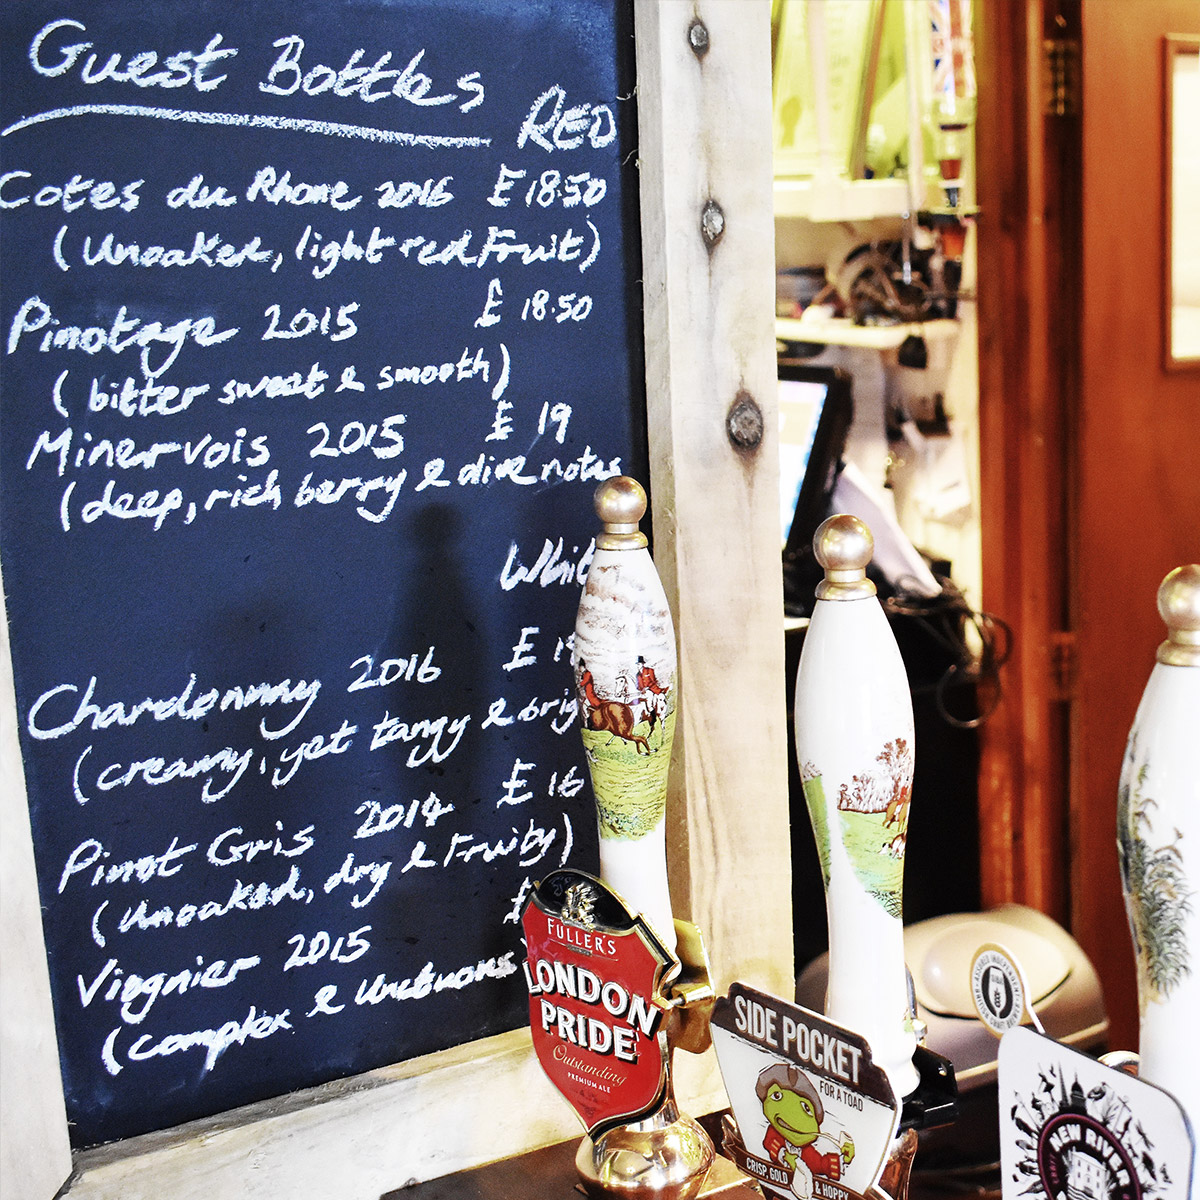 Guest Bottles
RED
Cotes du Rhone 2016 £18.50
(Unoaked, light red Fruit)
Pinotage 2015 £18.50
(bitter sweet & smooth)
Minervois 2015 £19
(deep, rich berry & olive notes
White
Chardonnay 2016 £
(creamy, yet tangy & brig
Pinot Gris 2014 £16
(Unoaked, dry & Fruity)
Viognier 2015 £
(complex & Unctuous
FULLER'S
LONDON
PRIDE
Outstanding
PREMIUM ALE
SIDE POCKET
FOR A TOAD
CRISP, GOLD
& HOPPY
NEW RIVER